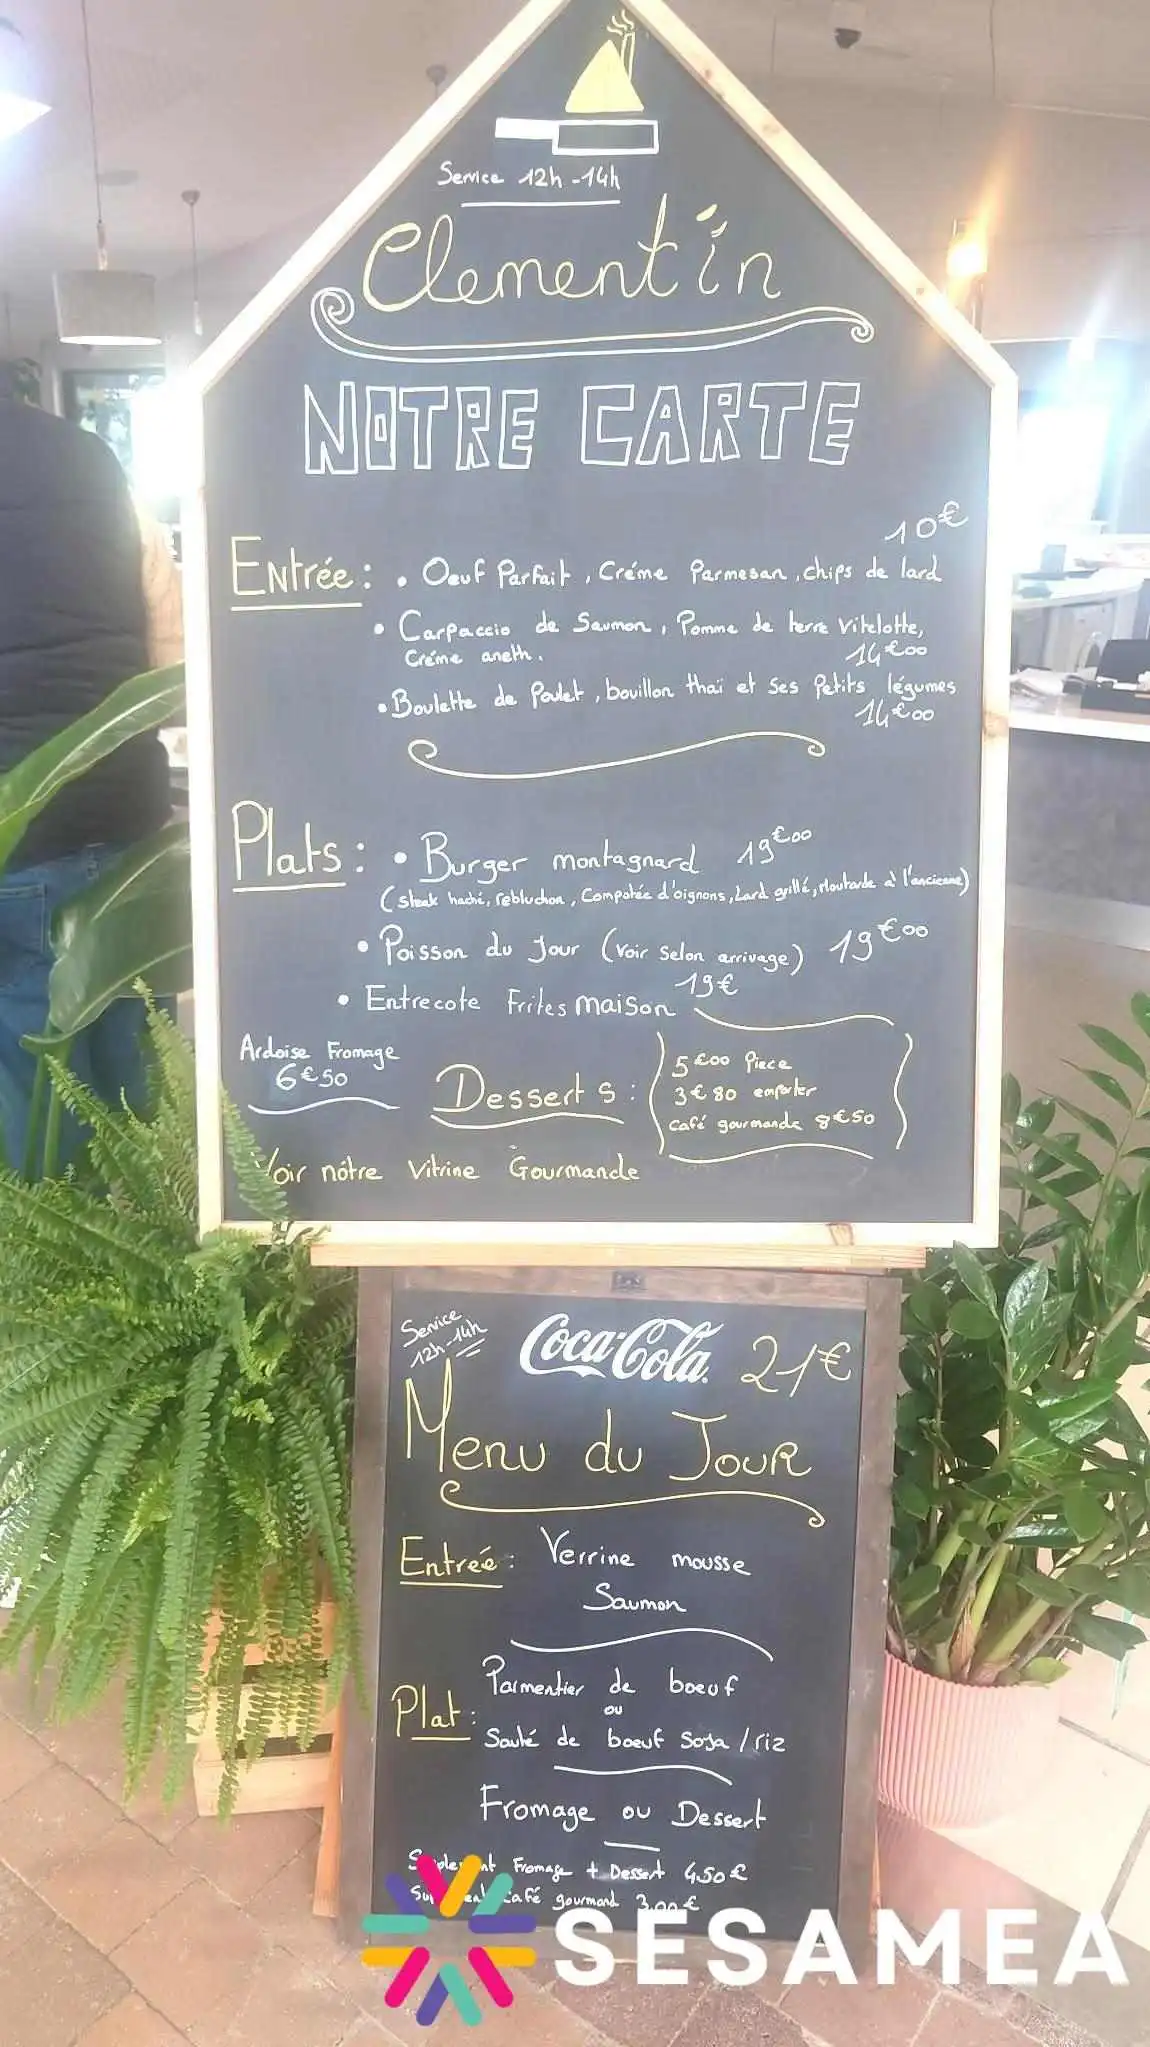 Service 12h-14h
Clement'in
NOTRE CARTE
10€
Entrée : • Oeuf Parfait, Créme Parmesan, chips de lard
• Carpaccio de Saumon, Pomme de terre Vitelotte,
Créme aneth.
14€00
• Boulette de Poulet, bouillon thaï et ses Petits légumes
14€00
Plats : • Burger montagnard 19€00
(steak haché, rebluchon, Compotée d'oignons, Lard grillé, Moutarde à l'ancienne)
• Poisson du Jour (Voir selon arrivage) 19€00
• Entrecote Frites maison 19€
Ardoise Fromage
6€50
Desserts :
5€00 Piece
3€80 emporter
café gourmande 8€50
Voir nôtre Vitrine Gourmande
Service
12h-14h
Coca-Cola 21€
Menu du Jour
Entreé : Verrine mousse
Saumon
Plat : Parmentier de boeuf
ou
Sauté de boeuf soja / riz
Fromage ou Dessert
Fromage + Dessert 4,50€
Café gourmand 3,00€
SESAMEA